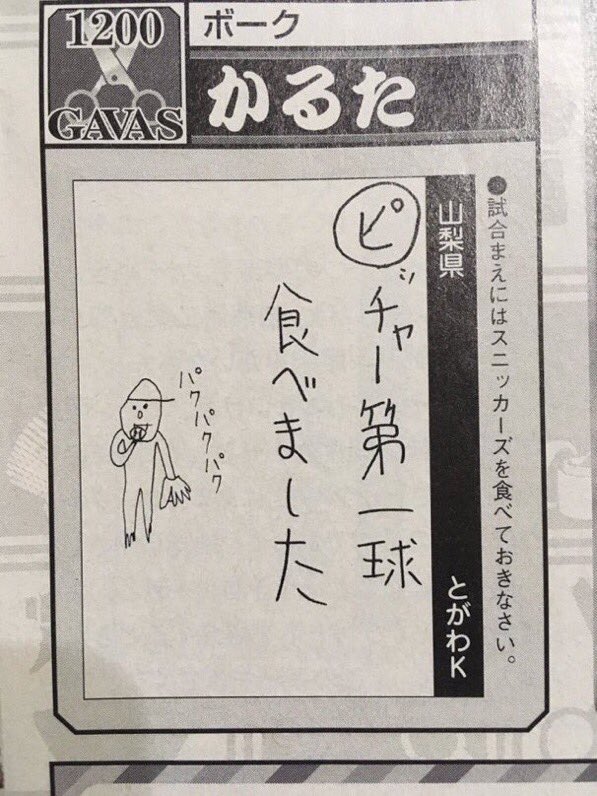 1200
GAVAS
ボーク
かるた
●試合まえにはスニッカーズを食べておきなさい。
山梨県 とがわK
ピッチャー第一球
食べました
パクパクパク